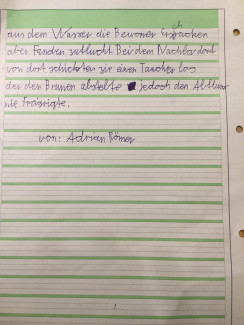 aus dem Wasser die Bewoner erschraken
aber Fanden zuflucht Bei dem Nachbardorf
von dort schickten sie einen Taucher los
der den Brunen abstelte jedoch den Altbauer
nie Fraugte.
von: Adrian Römer